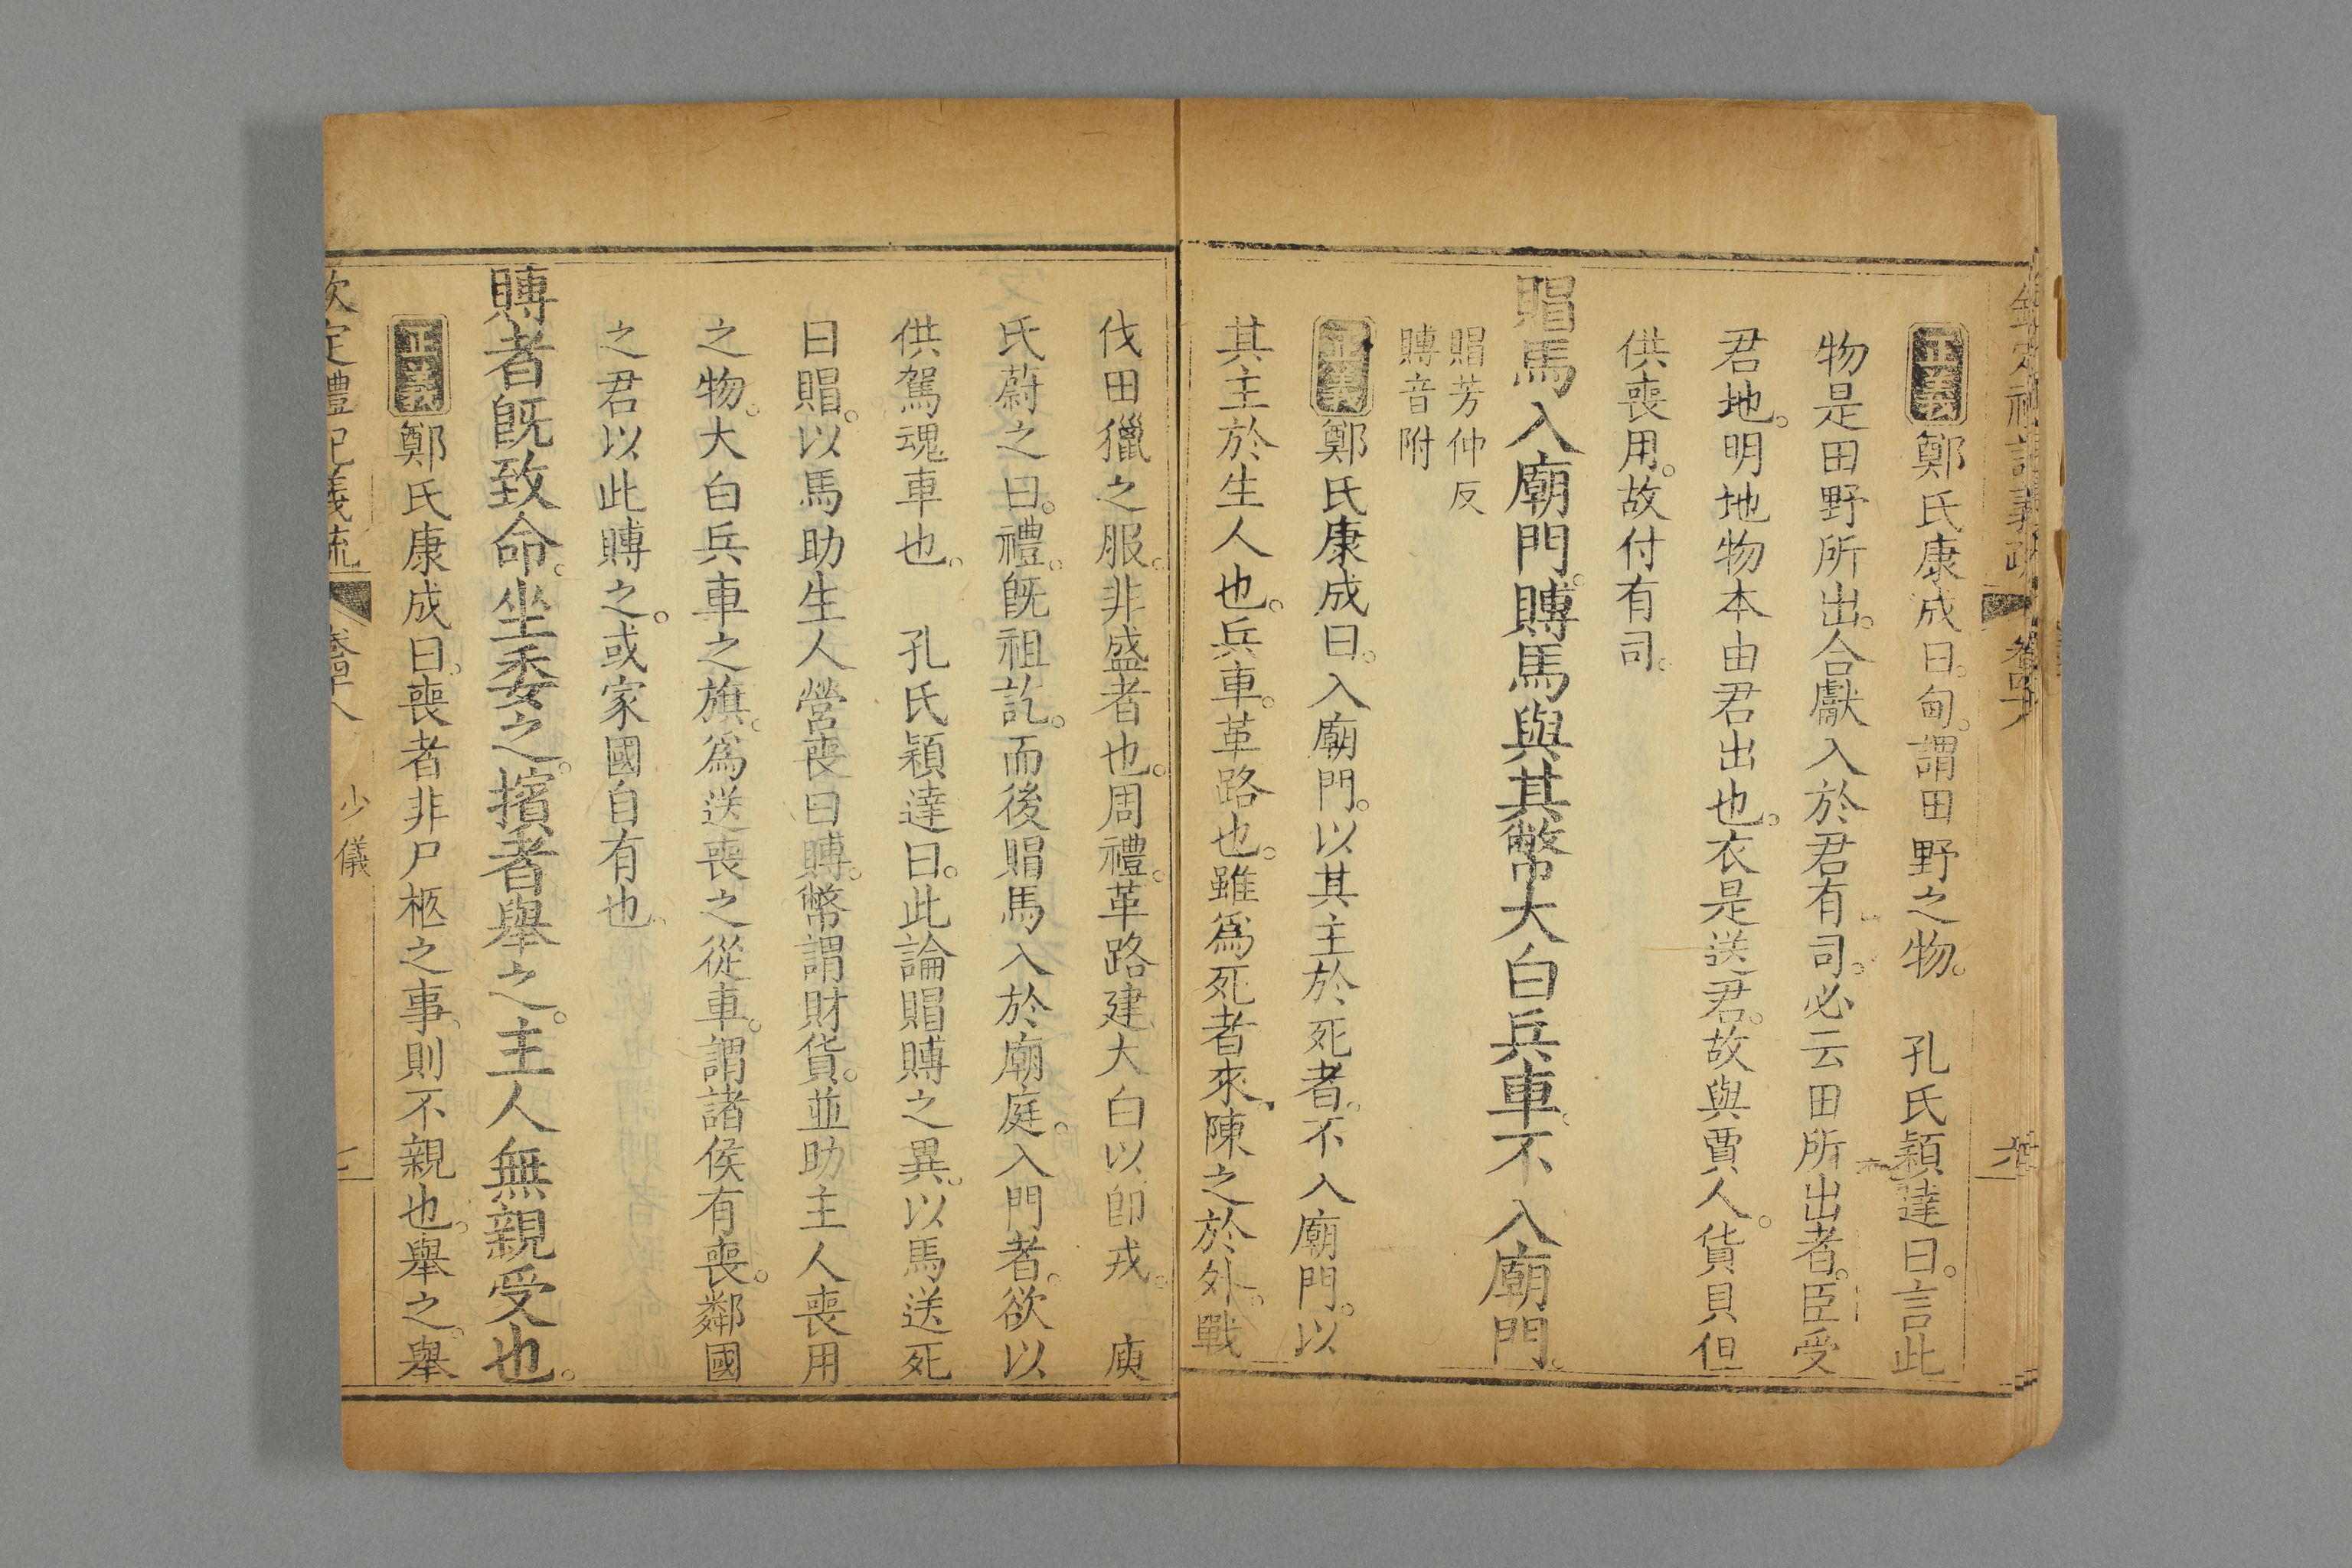 正義鄭氏康成曰。甸。謂田野之物。　孔氏穎達曰。言此
物是田野所出。合獻入於君有司。必云田所出者。臣受
君地。明地物本由君出也。衣是送君。故與賈人。貨貝但
供喪用。故付有司。
賵馬入廟門。賻馬與其幣大白兵車。不入廟門。
賵芳仲反
賻音附
正義鄭氏康成曰。入廟門。以其主於死者。不入廟門。以
其主於生人也。兵車。革路也。雖為死者來。陳之於外。戰
伐田獵之服。非盛者也。周禮。革路建大白以即戎。　庾
氏蔚之曰。禮。既祖訖。而後賵馬入於廟庭。入門者。欲以
供駕魂車也。　孔氏穎達曰。此論賵賻之異。以馬送死
曰賵。以馬助生人營喪曰賻。幣謂財貨。並助主人喪用
之物。大白兵車之旗。為送喪之從車。謂諸侯有喪。鄰國
之君以此賻之。或家國自有也。
賻者既致命。坐委之。擯者舉之。主人無親受也。
正義鄭氏康成曰。喪者非尸柩之事。則不親也。舉之。舉
欽定禮記義疏　少儀